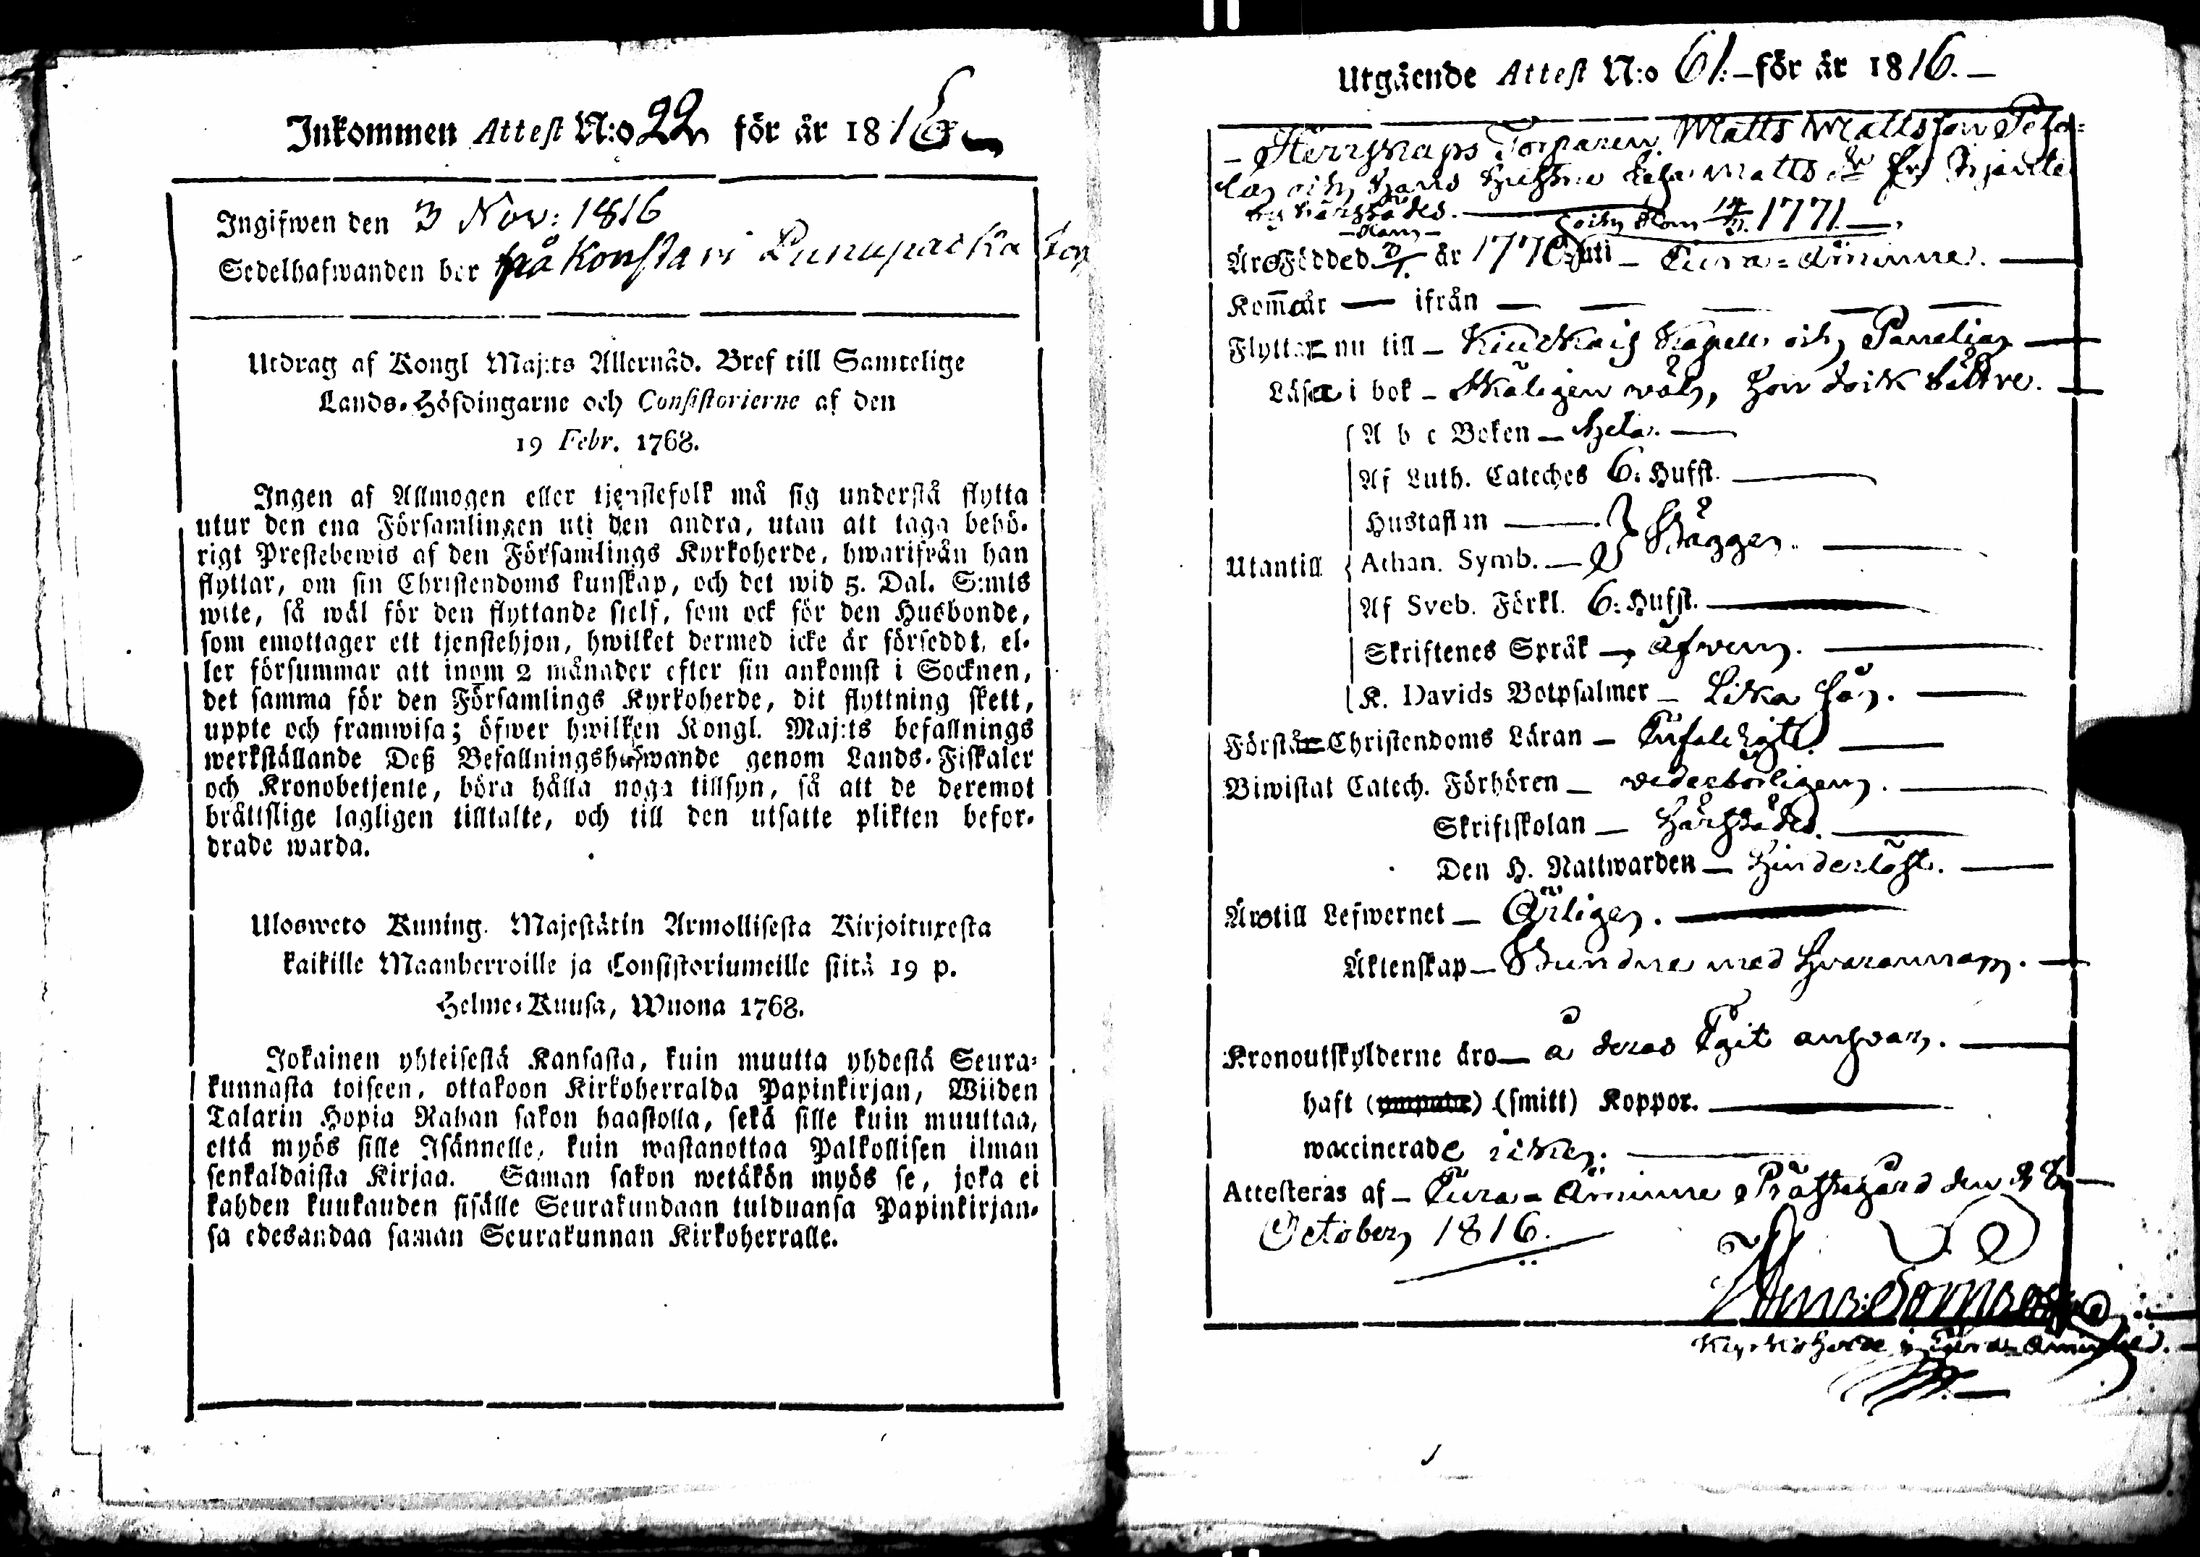 Inkommen Attest N:o 22 för år 1816
Ingifwen den 3 Nov: 1816
Sedelhafwanden bor på Konstari
Utdrag af Kongl Maj:ts Allernåd. Bref till Samtelige
Lands-Höfdingarne och Consistorierne af den
19 Febr. 1768.
Ingen af Allmogen eller tjenstefolk må sig understå flytta
utur den ena Församlingen uti den andra, utan att taga behö-
rigt Prestebewis af den Församlings Kyrkoherde, hwarifrån han
flyttar, om sin Christendoms kunskap, och det wid 5. Dal. S:mts
wite, så wäl för den flyttande sjelf, som ock för den Husbonde,
som emottager ett tjenstehjon, hwilket dermed icke är förseddt, el-
ler försummar att inom 2 månader efter sin ankomst i Socknen,
det samma för den Församlings Kyrkoherde, dit flyttning skett,
uppte och framwisa; öfwer hwilken Kongl. Maj:ts befallnings
werkställande Deß Befallningshafwande genom Lands-Fiskaler
och Kronobetjente, böra hålla noga tillsyn, så att de deremot
bråttslige lagligen tilltalte, och till den utsatte plikten befor-
drade warda.
Ulosweto Kuning. Majestätin Armollisesta Kirjoituxesta
kaikille Maanherroille ja Consistoriumeille siitä 19 p.
Helme-Kuusa, Wuona 1768.
Jokainen yhteisestä Kansasta, kuin muutta yhdestä Seura-
kunnasta toiseen, ottakoon Kirkoherralda Papinkirjan, Wiiden
Talarin Hopia Rahan sakon haastolla, sekä sille kuin muuttaa,
että myös sille Isännelle, kuin wastanottaa Palkollisen ilman
senkaldaista Kirjaa. Saman sakon wetäkön myös se, joka ei
kahden kuukauden sisälle Seurakundaan tulduansa Papinkirjan-
sa edesandaa saman Seurakunnan Kirkoherralle.
Utgående Attest N:o 61. för år 1816.
Herrskaps Torparen Matts Mattsson
och hans Hustru Matts dr fr.
by härstädes. och Hon 14/9 1771
Äro Födde d. år 1770 uti Eura-Åminne.
Kom̄ år — ifrån —
Flyttar nu till Kapell och Panelia
Läsa i bok Skäligen wäl, Hon dock bättre.
A b c Boken Hela.
Af Luth. Cateches 6. Hufst.
Hustaflan
Utantill Athan. Symb. Bägge.
Af Sveb. Förkl. 6. Hufst.
Skriftenes Språk äfwen.
K. Davids Botpsalmer Lika så.
Förstå Christendoms Läran Enfaldigt.
Biwistat Catech. Förhören wederbörligen.
Skriftskolan Härstädes.
Den H. Nattwarden Hinderlöst.
Äro till Lefwernet Ärlige.
Äktenskap Bundne med Hvarannan.
Kronoutskylderne äro å deras Egit answar.
haft (smitt) Koppor.
waccinerade icke.
Attesteras af Eura-Åminne Prästegård den
October 1816.
Kyrkoherde i Eura-Åminne.